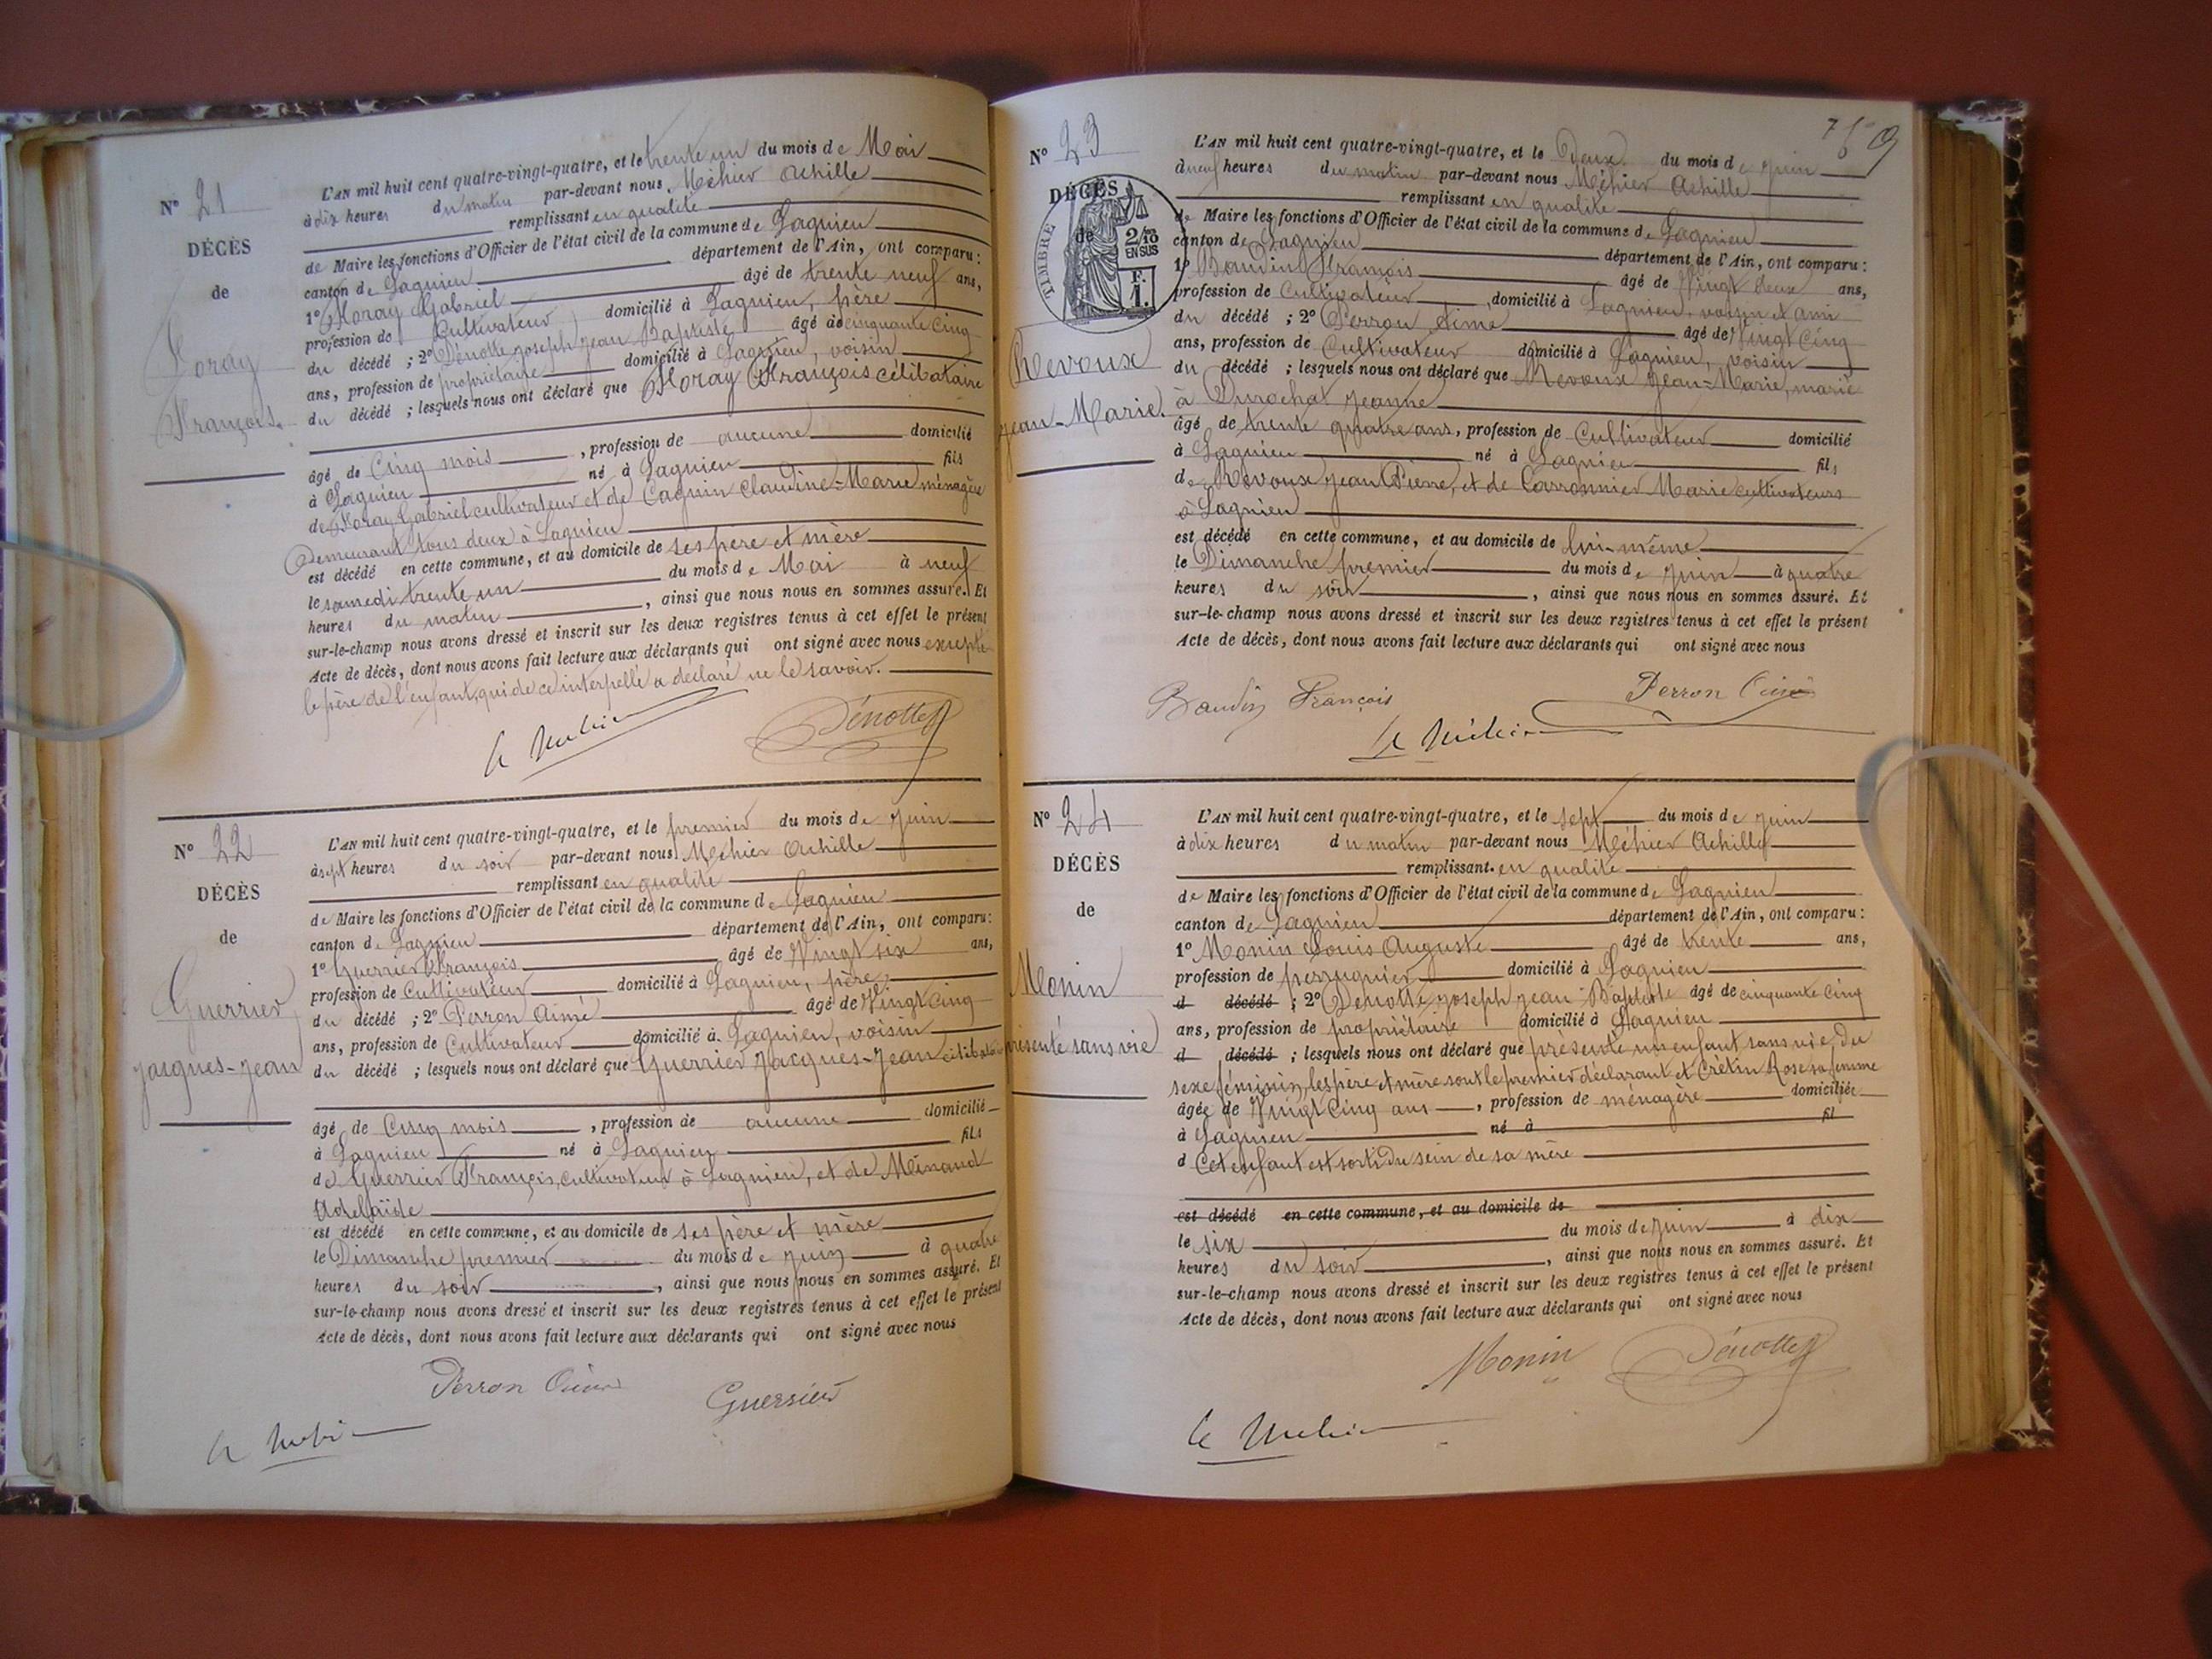 N° 21
DÉCÈS
de
Foray
François.
L'AN mil huit cent quatre-vingt-quatre, et le trente un du mois de Mai
à dix heures du matin par-devant nous Méhier Achille
remplissant en qualité
de Maire les fonctions d'Officier de l'état civil de la commune de Lagnieu
canton de Lagnieu département de l'Ain, ont comparu :
1° Foray Gabriel âgé de trente neuf ans,
profession de Cultivateur domicilié à Lagnieu, père
du décédé ; 2° Dénotte Joseph Jean Baptiste âgé de cinquante cinq
ans, profession de propriétaire domicilié à Lagnieu, voisin
du décédé ; lesquels nous ont déclaré que Foray François célibataire
âgé de Cinq mois , profession de aucune domicilié
à Lagnieu né à Lagnieu fils
de Foray Gabriel cultivateur et de Cagnin Claudine-Marie ménagère
Demeurant tous deux à Lagnieu
est décédé en cette commune, et au domicile de ses père et mère
le samedi trente un du mois de Mai à neuf
heures du matin , ainsi que nous nous en sommes assuré. Et
sur-le-champ nous avons dressé et inscrit sur les deux registres tenus à cet effet le présent
Acte de décès, dont nous avons fait lecture aux déclarants qui ont signé avec nous excepté
le père de l'enfant, qui de ce interpellé a déclaré ne le savoir.
Dénotte
N° 22
DÉCÈS
de
Guerrier
Jacques-Jean
L'AN mil huit cent quatre-vingt-quatre, et le premier du mois de Juin
à sept heures du soir par-devant nous Méhier Achille
remplissant en qualité
de Maire les fonctions d'Officier de l'état civil de la commune de Lagnieu
canton de Lagnieu département de l'Ain, ont comparu :
1° Guerrier François âgé de Vingt six ans,
profession de Cultivateur domicilié à Lagnieu, père
du décédé ; 2° Perron Aimé âgé de Vingt Cinq
ans, profession de Cultivateur domicilié à Lagnieu, voisin
du décédé ; lesquels nous ont déclaré que Guerrier Jacques-Jean célibataire
âgé de Cinq mois , profession de aucune domicilié
à Lagnieu né à Lagnieu fils
de Guerrier François, cultivateur à Lagnieu, et de Minaud
Adelaïde
est décédé en cette commune, et au domicile de ses père et mère
le Dimanche premier du mois de Juin à quatre
heures du soir , ainsi que nous nous en sommes assuré. Et
sur-le-champ nous avons dressé et inscrit sur les deux registres tenus à cet effet le présent
Acte de décès, dont nous avons fait lecture aux déclarants qui ont signé avec nous
Perron Aimé
Guerrier
N° 23
DÉCÈS
de
TIMBRE
2/10
EN SUS
F.
1.
Revoux
Jean-Marie.
L'AN mil huit cent quatre-vingt-quatre, et le Deux du mois de Juin
à neuf heures du matin par-devant nous Méhier Achille
remplissant en qualité
de Maire les fonctions d'Officier de l'état civil de la commune de Lagnieu
canton de Lagnieu département de l'Ain, ont comparu :
1° Baudin François âgé de Vingt deux ans,
profession de Cultivateur , domicilié à Lagnieu, voisin et ami
du décédé ; 2° Perron Aimé âgé de Vingt Cinq
ans, profession de Cultivateur domicilié à Lagnieu, voisin
du décédé ; lesquels nous ont déclaré que Revoux Jean-Marie, marié
à Durochat Jeanne
âgé de trente quatre ans, profession de Cultivateur domicilié
à Lagnieu né à Lagnieu fils
de Revoux Jean Pierre, et de Carronnier Marie cultivateurs
à Lagnieu
est décédé en cette commune, et au domicile de lui-même
le Dimanche premier du mois de Juin à quatre
heures du soir , ainsi que nous nous en sommes assuré. Et
sur-le-champ nous avons dressé et inscrit sur les deux registres tenus à cet effet le présent
Acte de décès, dont nous avons fait lecture aux déclarants qui ont signé avec nous
Baudin François
Perron Aimé
N° 24
DÉCÈS
de
Monin
présenté sans vie
L'AN mil huit cent quatre-vingt-quatre, et le sept du mois de Juin
à dix heures du matin par-devant nous Méhier Achille
remplissant en qualité
de Maire les fonctions d'Officier de l'état civil de la commune de Lagnieu
canton de Lagnieu département de l'Ain, ont comparu :
1° Monin Louis Auguste âgé de trente ans,
profession de perruquier domicilié à Lagnieu
d décédé ; 2° Dénotte Joseph Jean-Baptiste âgé de cinquante cinq
ans, profession de propriétaire domicilié à Lagnieu
d décédé ; lesquels nous ont déclaré que présenté un enfant sans vie, du
sexe féminin, les père et mère sont le premier déclarant et Crétin Rose sa femme
âgée de Vingt Cinq ans , profession de ménagère domiciliée
à Lagnieu né à fil
d Cet enfant est sorti du sein de sa mère
est décédé en cette commune, et au domicile de
le six du mois de Juin à dix
heures du soir , ainsi que nous nous en sommes assuré. Et
sur-le-champ nous avons dressé et inscrit sur les deux registres tenus à cet effet le présent
Acte de décès, dont nous avons fait lecture aux déclarants qui ont signé avec nous
Monin
Dénotte